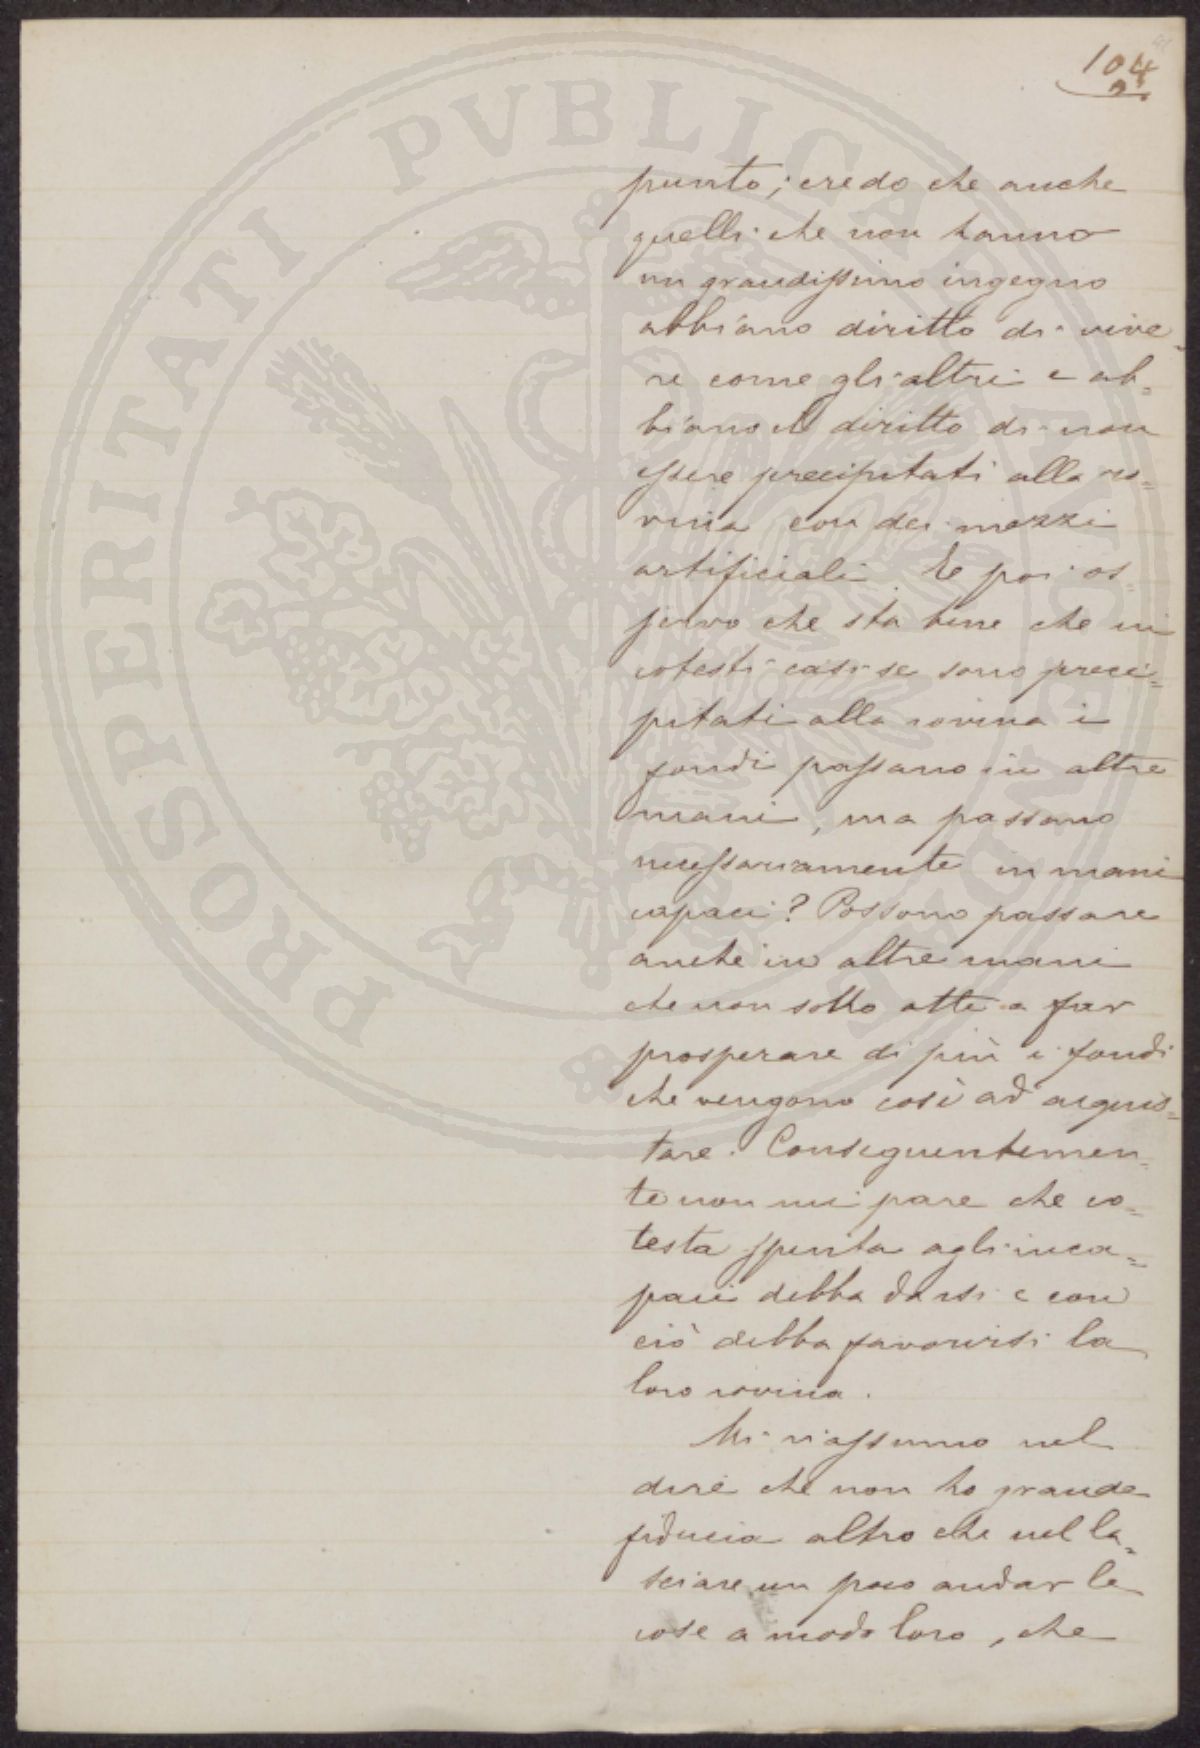 104
2.
punto; credo che anche
quelli che non hanno
un grandissimo ingegno
abbiano diritto di vive=
re come gli altri e ab=
biano il diritto di non
essere precipitati alla ro=
vina con dei mezzi
artificiali. E poi os=
servo che sta bene che in
cotesti casi se sono preci=
pitati alla rovina i
fondi passano in altre
mani, ma passano
necessariamente in mani
capaci? Possono passare
anche in altre mani
che non sono atte a far
prosperare di più i fondi
che vengono così ad acquis=
tare. Conseguentemen=
te non mi pare che co=
testa spinta agli inca=
paci debba darsi e con
ciò debba favorirsi la
loro rovina.
Mi riassumo nel
dire che non ho grande
fiducia altro che nel la=
sciare un poco andar le
cose a modo loro, che
PROSPERITATI PVBLICAE